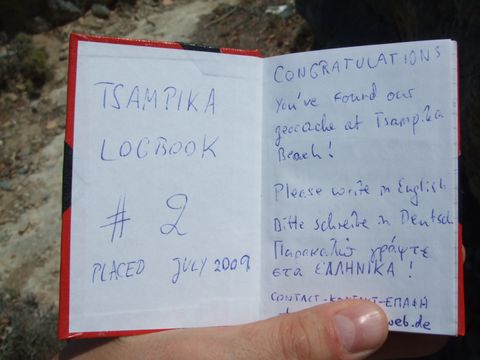 TSAMPIKA
LOGBOOK
# 2
PLACED JULY 2009
CONGRATULATIONS
You've found our
geocache at Tsampika
Beach!
Please write in English
Bitte schreibe in Deutsch
Παρακαλώ γράψτε
στα ΕΛΛΗΝΙΚΑ!
CONTACT-KONTAKT-ΕΠΑΦΗ
web.de